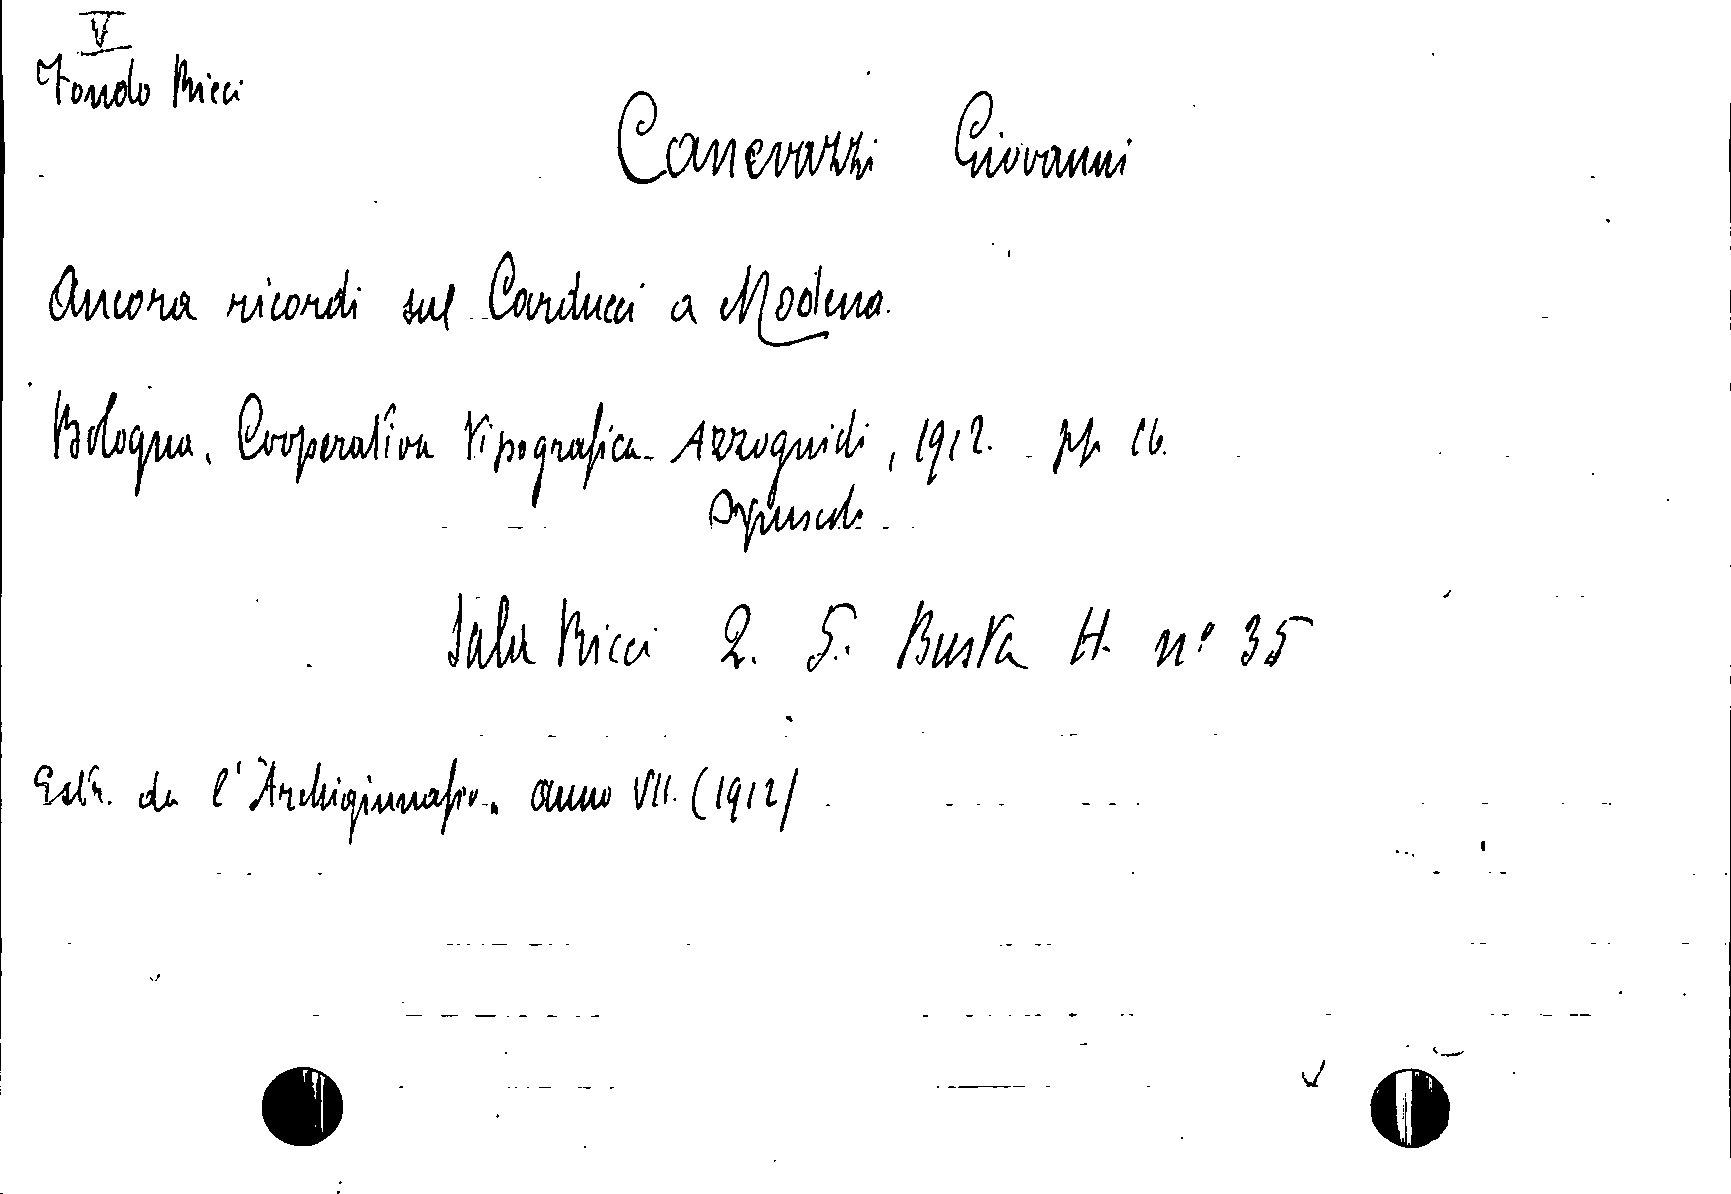 V
Fondo Ricci
Canevazzi Giovanni
Ancora ricordi sul Carducci a Modena.
Bologna, Cooperativa Tipografica Azzoguidi, 1912. pp. 16.
Opuscolo
Sala Ricci 2. 5. Busta H. nº 35
Estr. da l'"Archiginnasio" anno VII. (1912)